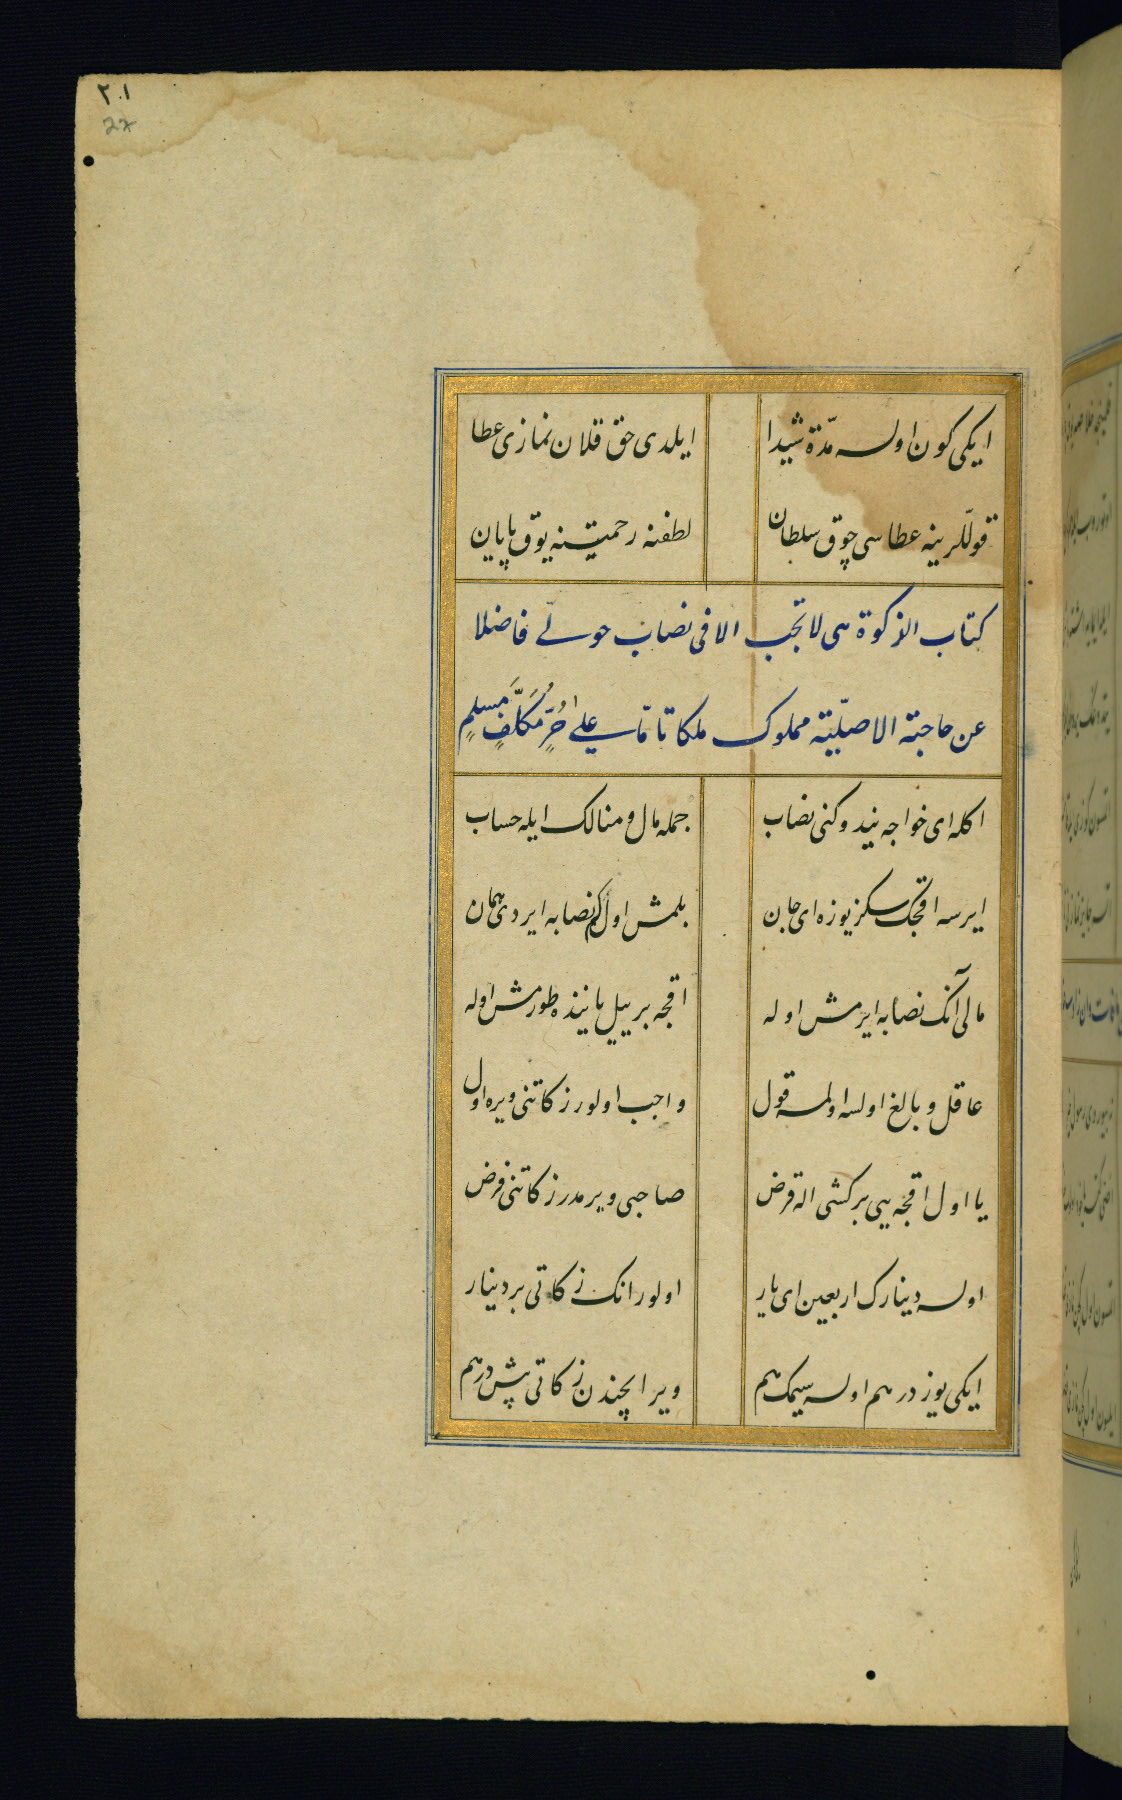 ٢٠١
27
ایکی کون اولسه مدّة شیدا ایلدی حق قلان نمازی عطا
قوللرینه عطاسی چوق سلطان لطفنه رحمیتنه یوق پایان
کتاب الزکوة هی لا تجب الا فی نصاب حولی فاضلا
عن حاجته الاصلّیّة مملوک ملکا تامّا علی حُرٍّ مُکَلَّفٍ مُسلمٍ
اکله ای خواجه نیدوکنی نصاب جمله مال و منالک ایله حساب
ایرسه اقچک سکز یوزه ای جان بلمش اول کم نصابه ایردی همان
مالی آنک نصابه ایرمش اوله اقچه بر ییل یاننده طورمش اوله
عاقل و بالغ اولسه اولمسه قول واجب اولور زکاتنی ویره اول
یا اول اقچه یی بر کشی اله قرض صاحبی ویرمدر زکاتنی فرض
اولسه دینارک اربعین ای یار اولور انک زکاتی بر دینار
ایکی یوز درهم اولسه سیمک هم ویر ایچندن زکاتی پش درهم